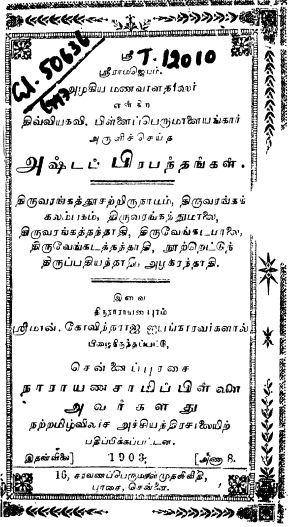 ஸ்ரீ T. 12010
GL. 50636
ஸ்ரீராமஜெயம்.
அழகிய மணவாளதாஸர்
என்கிற
திவ்வியகவி. பிள்ளைப்பெருமாளையங்கார்
அருளிச்செய்த
அஷ்டப் பிரபந்தங்கள்.
திருவரங்கத்தூசற்றிருநாமம், திருவரங்கக்
கலம்பகம், திருவரங்கத்துமாலை,
திருவரங்கத்தந்தாதி, திருவேங்கடமாலை,
திருவேங்கடத்தந்தாதி, நூற்றெட்டுத்
திருப்பதியந்தாதி அழகரந்தாதி.
இவை
திருநாராயணபுரம்
ஸ்ரீமான். கோவிந்தராஜ ஐயங்காரவர்களால்
பிழைதீர்ந்தப்பட்டு,
சென்னப்புரசை
நாராயணசாமிப்பிள்ளை
அவர்களது
நற்றமிழ்விலாச அச்சியந்திரசாலையிற்
பதிப்பிக்கப்பட்டன.
இதன்விலை] 1903. [அணா 8.
16, சரவணப்பெருமாள்முதலிவீதி,
புரசை, சென்னை.